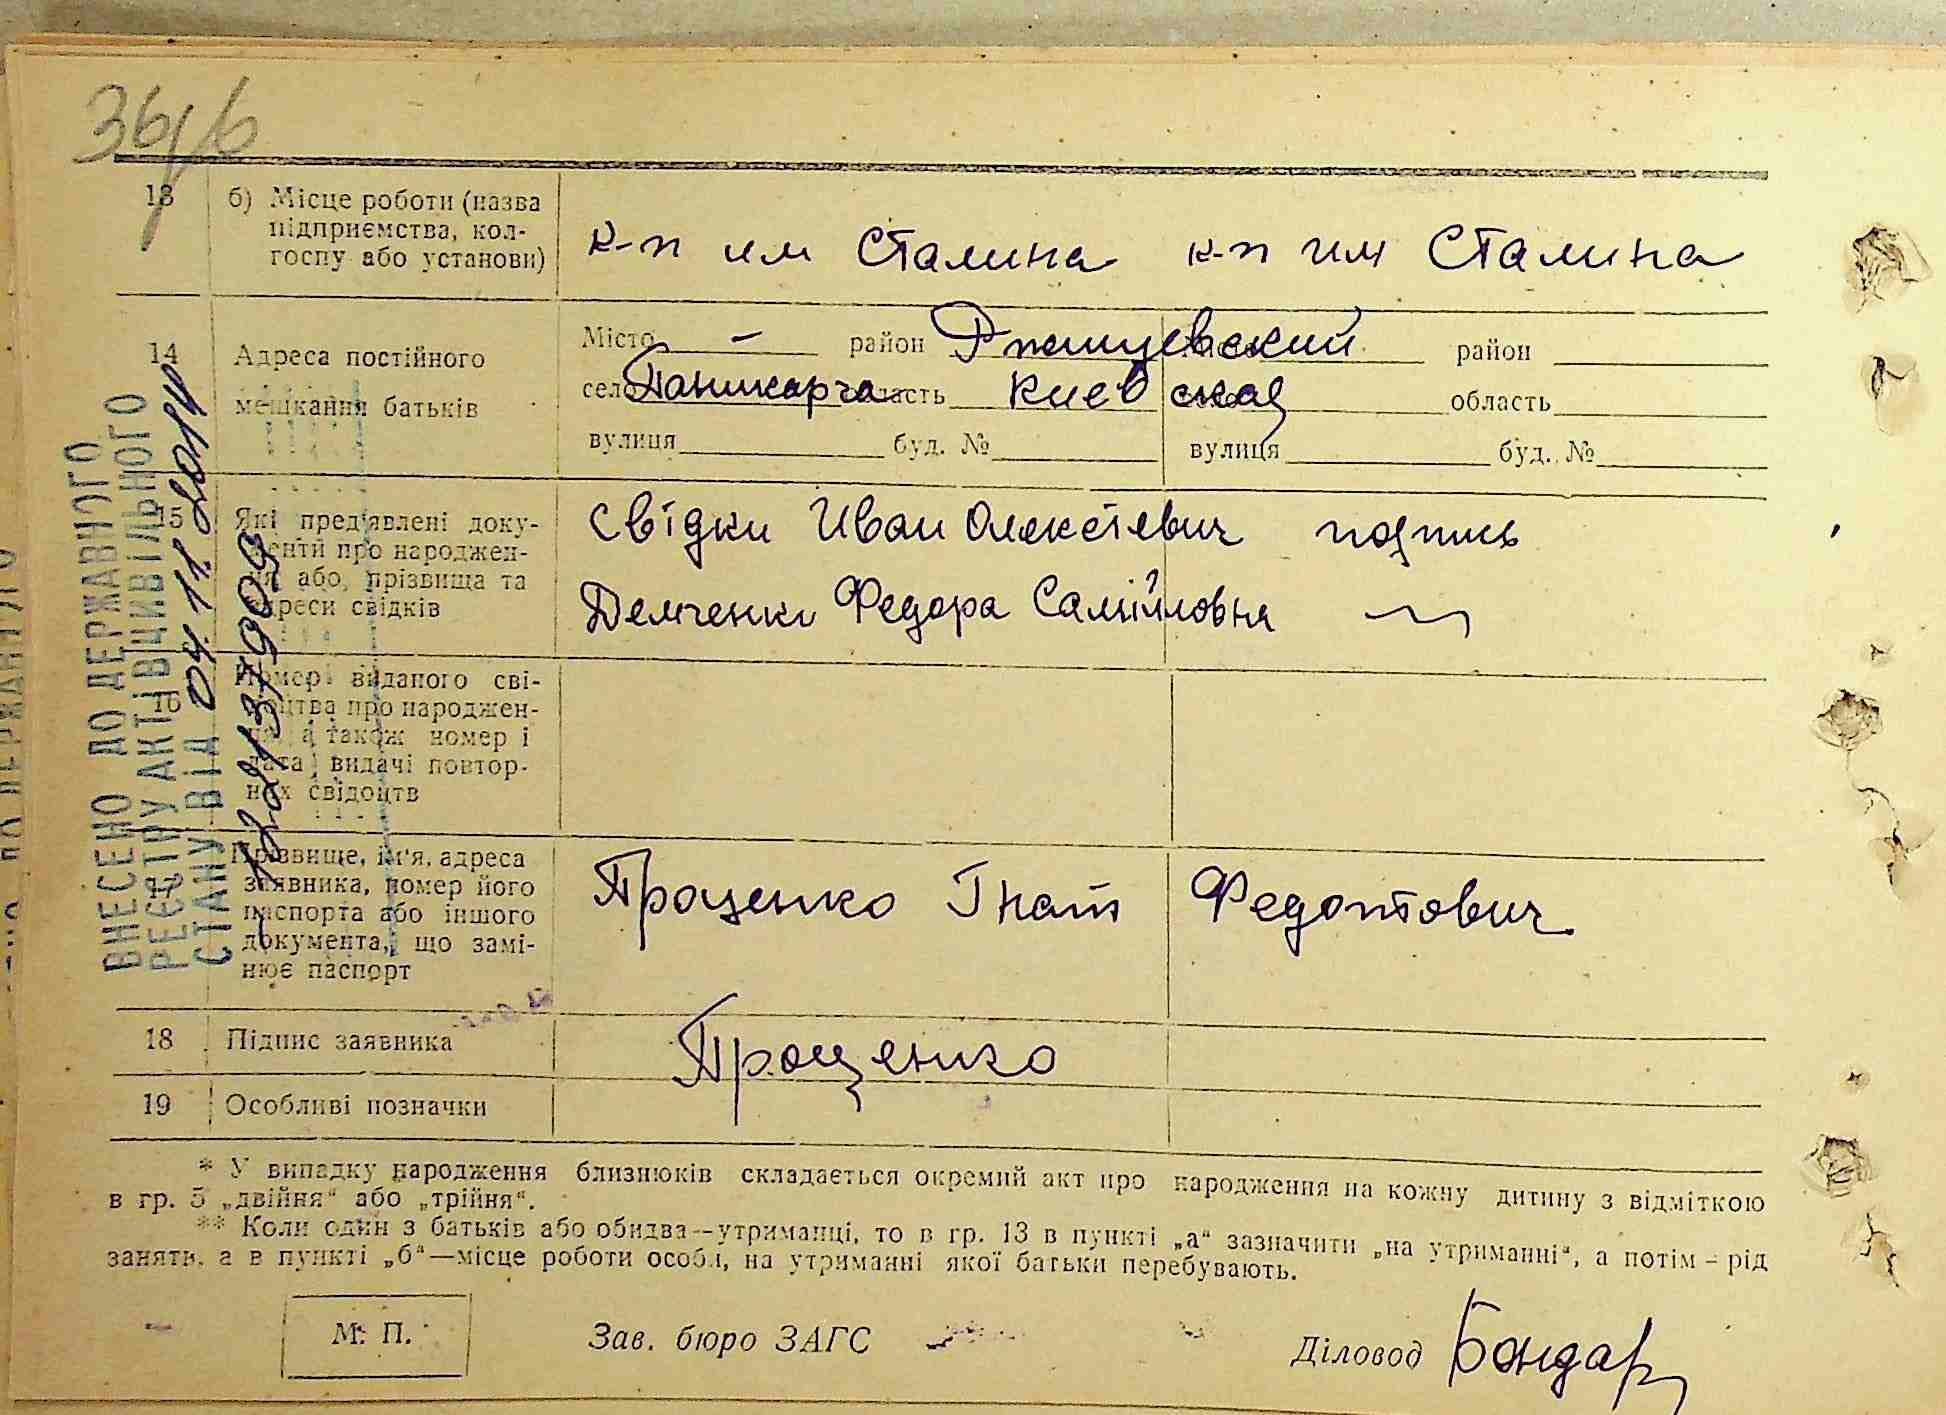 13 б) Місце роботи (назва
підприємства, кол-
госпу або установи)
к-п им Сталина к-п им Сталина
14 Адреса постійного
мешкання батьків
Місто – район Ржищевский район
село Паникарча область Киевская область
вулиця буд. № вулиця буд. №
15 Які пред'явлені доку-
менти про народжен-
ня, або, прізвища та
адреси свідків
Свідки Иван Олексієвич подпись
Демченко Федора Самійловня
16 Номер виданого сві-
доцтва про народжен-
ня, а також номер і
дата видачі повтор-
них свідоцтв
17 Прізвище, ім'я, адреса
заявника, номер його
паспорта або іншого
документа, що замі-
нює паспорт
Проценко Гнат Федотович
18 Підпис заявника
Проценко
19 Особливі позначки
* У випадку народження близнюків складається окремий акт про народження на кожну дитину з відміткою
в гр. 5 „двійня“ або „трійня“.
** Коли один з батьків або обидва—утриманці, то в гр. 13 в пункті „а“ зазначити „на утриманні“, а потім – рід
занять, а в пункті „б“—місце роботи особи, на утриманні якої батьки перебувають.
М. П. Зав. бюро ЗАГС Діловод Бондар
ВНЕСЕНО ДО ДЕРЖАВНОГО
РЕЄСТРУ АКТІВ ЦИВІЛЬНОГО
СТАНУ ВІД 04.11.20